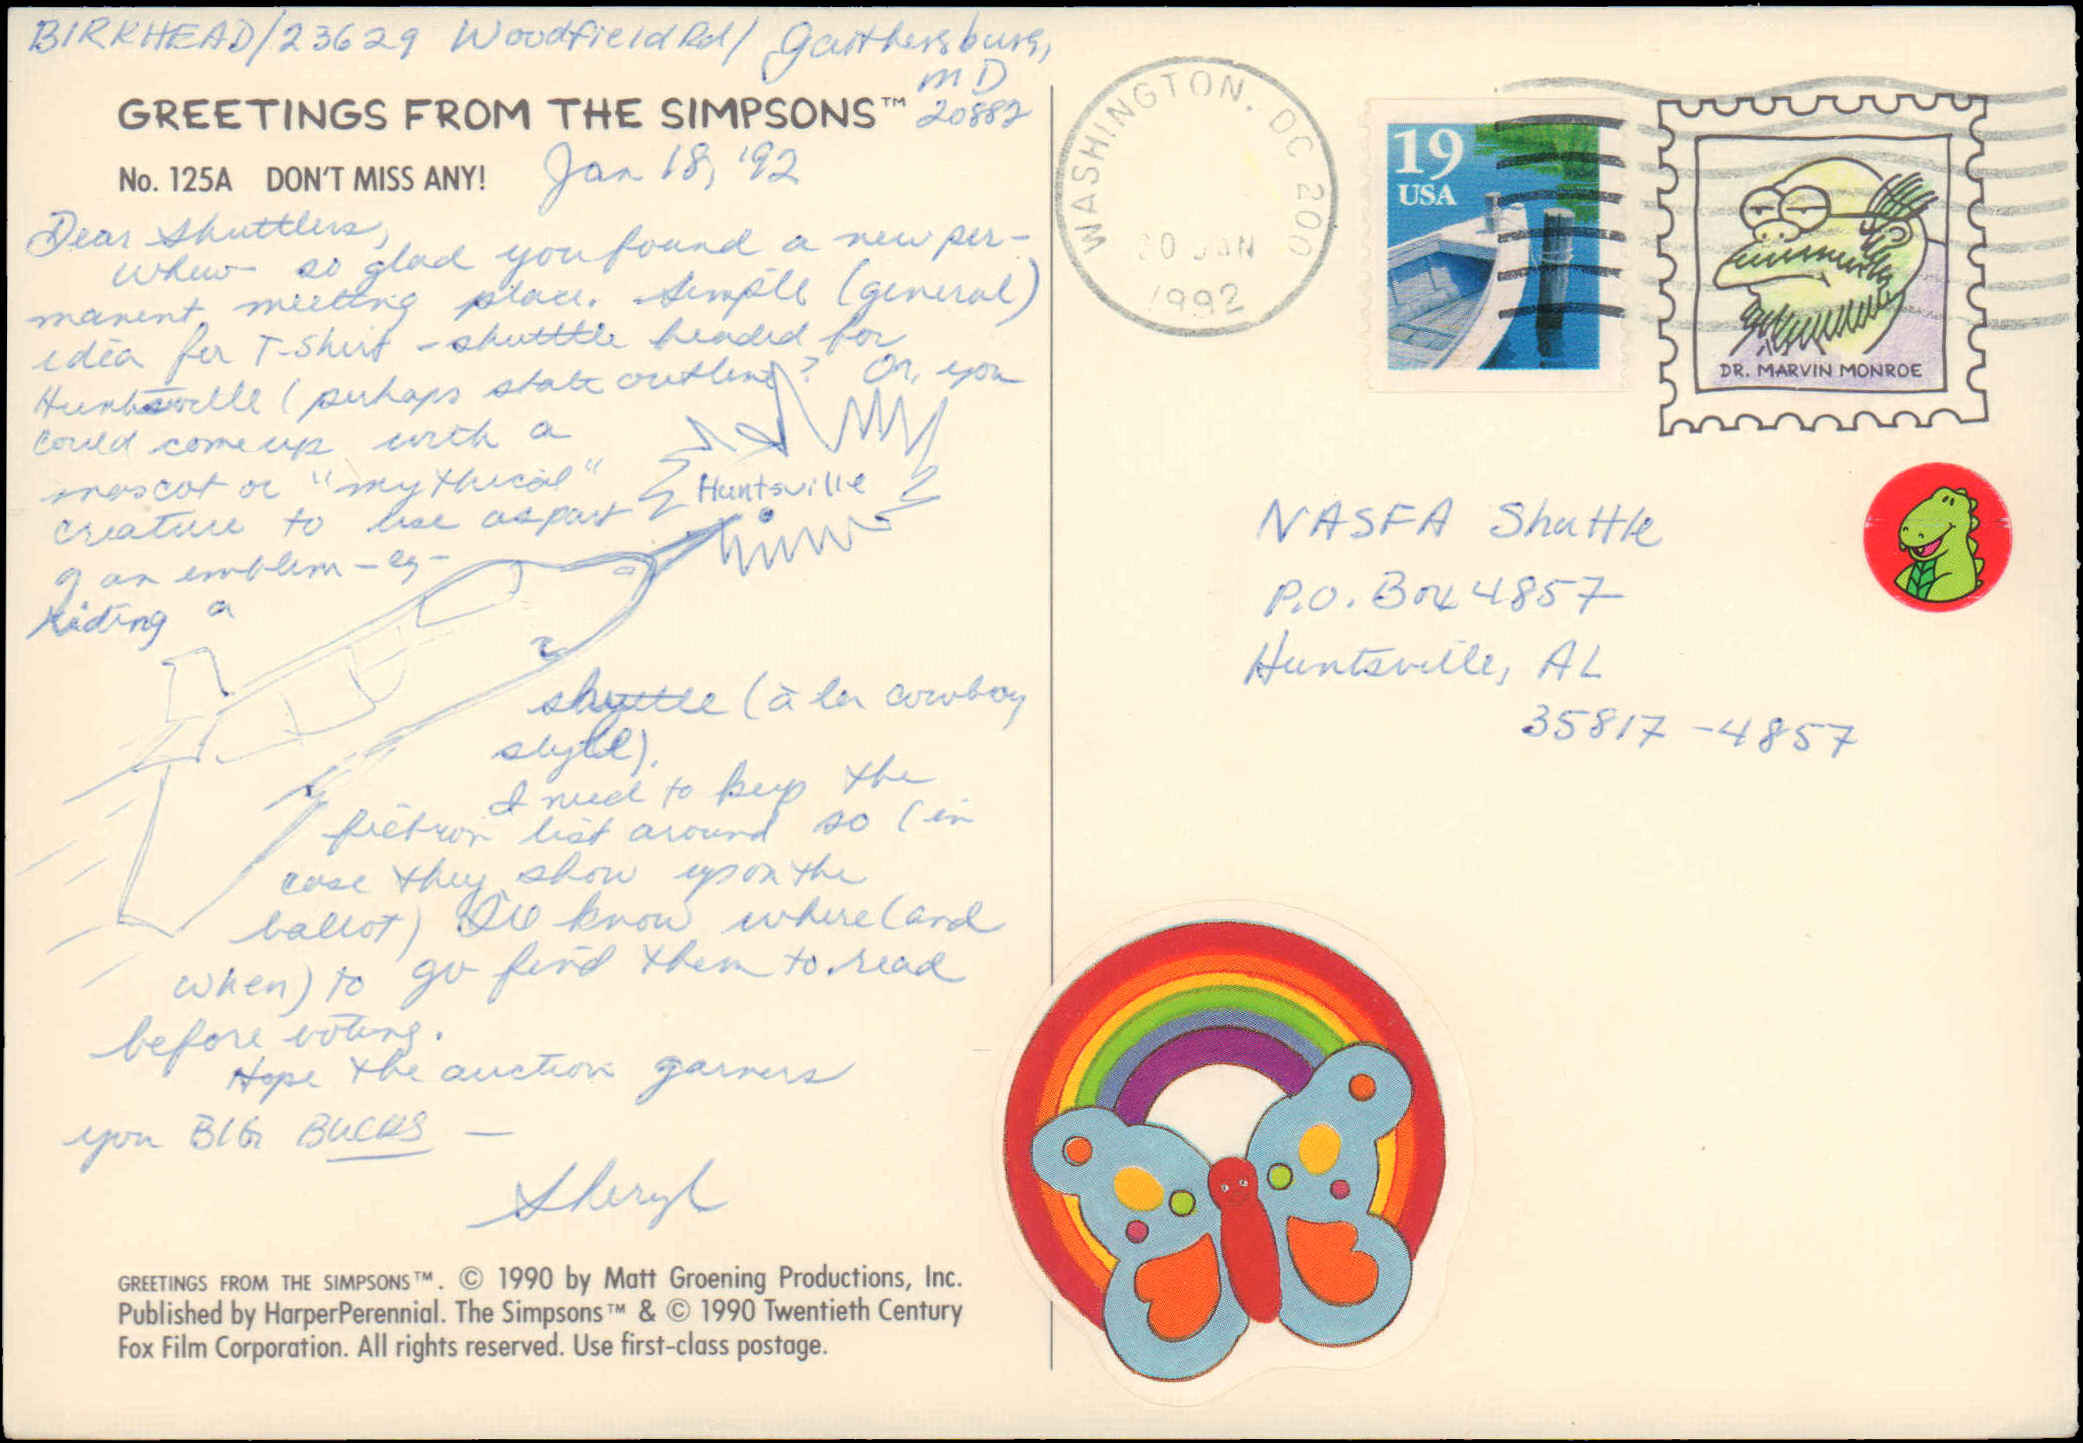 BIRKHEAD/23629 Woodfield Rd/ Gaithersburg,
MD
20882
GREETINGS FROM THE SIMPSONS™
No. 125A DON'T MISS ANY!
Jan 18, '92
Dear Shuttlers,
whew - so glad you found a new per-
manent meeting place. Simple (general)
idea for T-Shirt - shuttle headed for
Huntsville (perhaps state outline)? Or, you
could come up with a
mascot or "mythical"
creature to use as part
of an emblem - eg -
riding a
Huntsville
shuttle (à la cowboy
style).
I need to keep the
fiction list around so (in
case they show up on the
ballot) I'll know where (and
when) to go find them to read
before voting.
Hope the auction garners
you BIG BUCKS —
Sheryl
GREETINGS FROM THE SIMPSONS™. © 1990 by Matt Groening Productions, Inc.
Published by HarperPerennial. The Simpsons™ & © 1990 Twentieth Century
Fox Film Corporation. All rights reserved. Use first-class postage.
WASHINGTON, DC 200
20 JAN
1992
19
USA
DR. MARVIN MONROE
NASFA Shuttle
P.O. Box 4857
Huntsville, AL
35817-4857